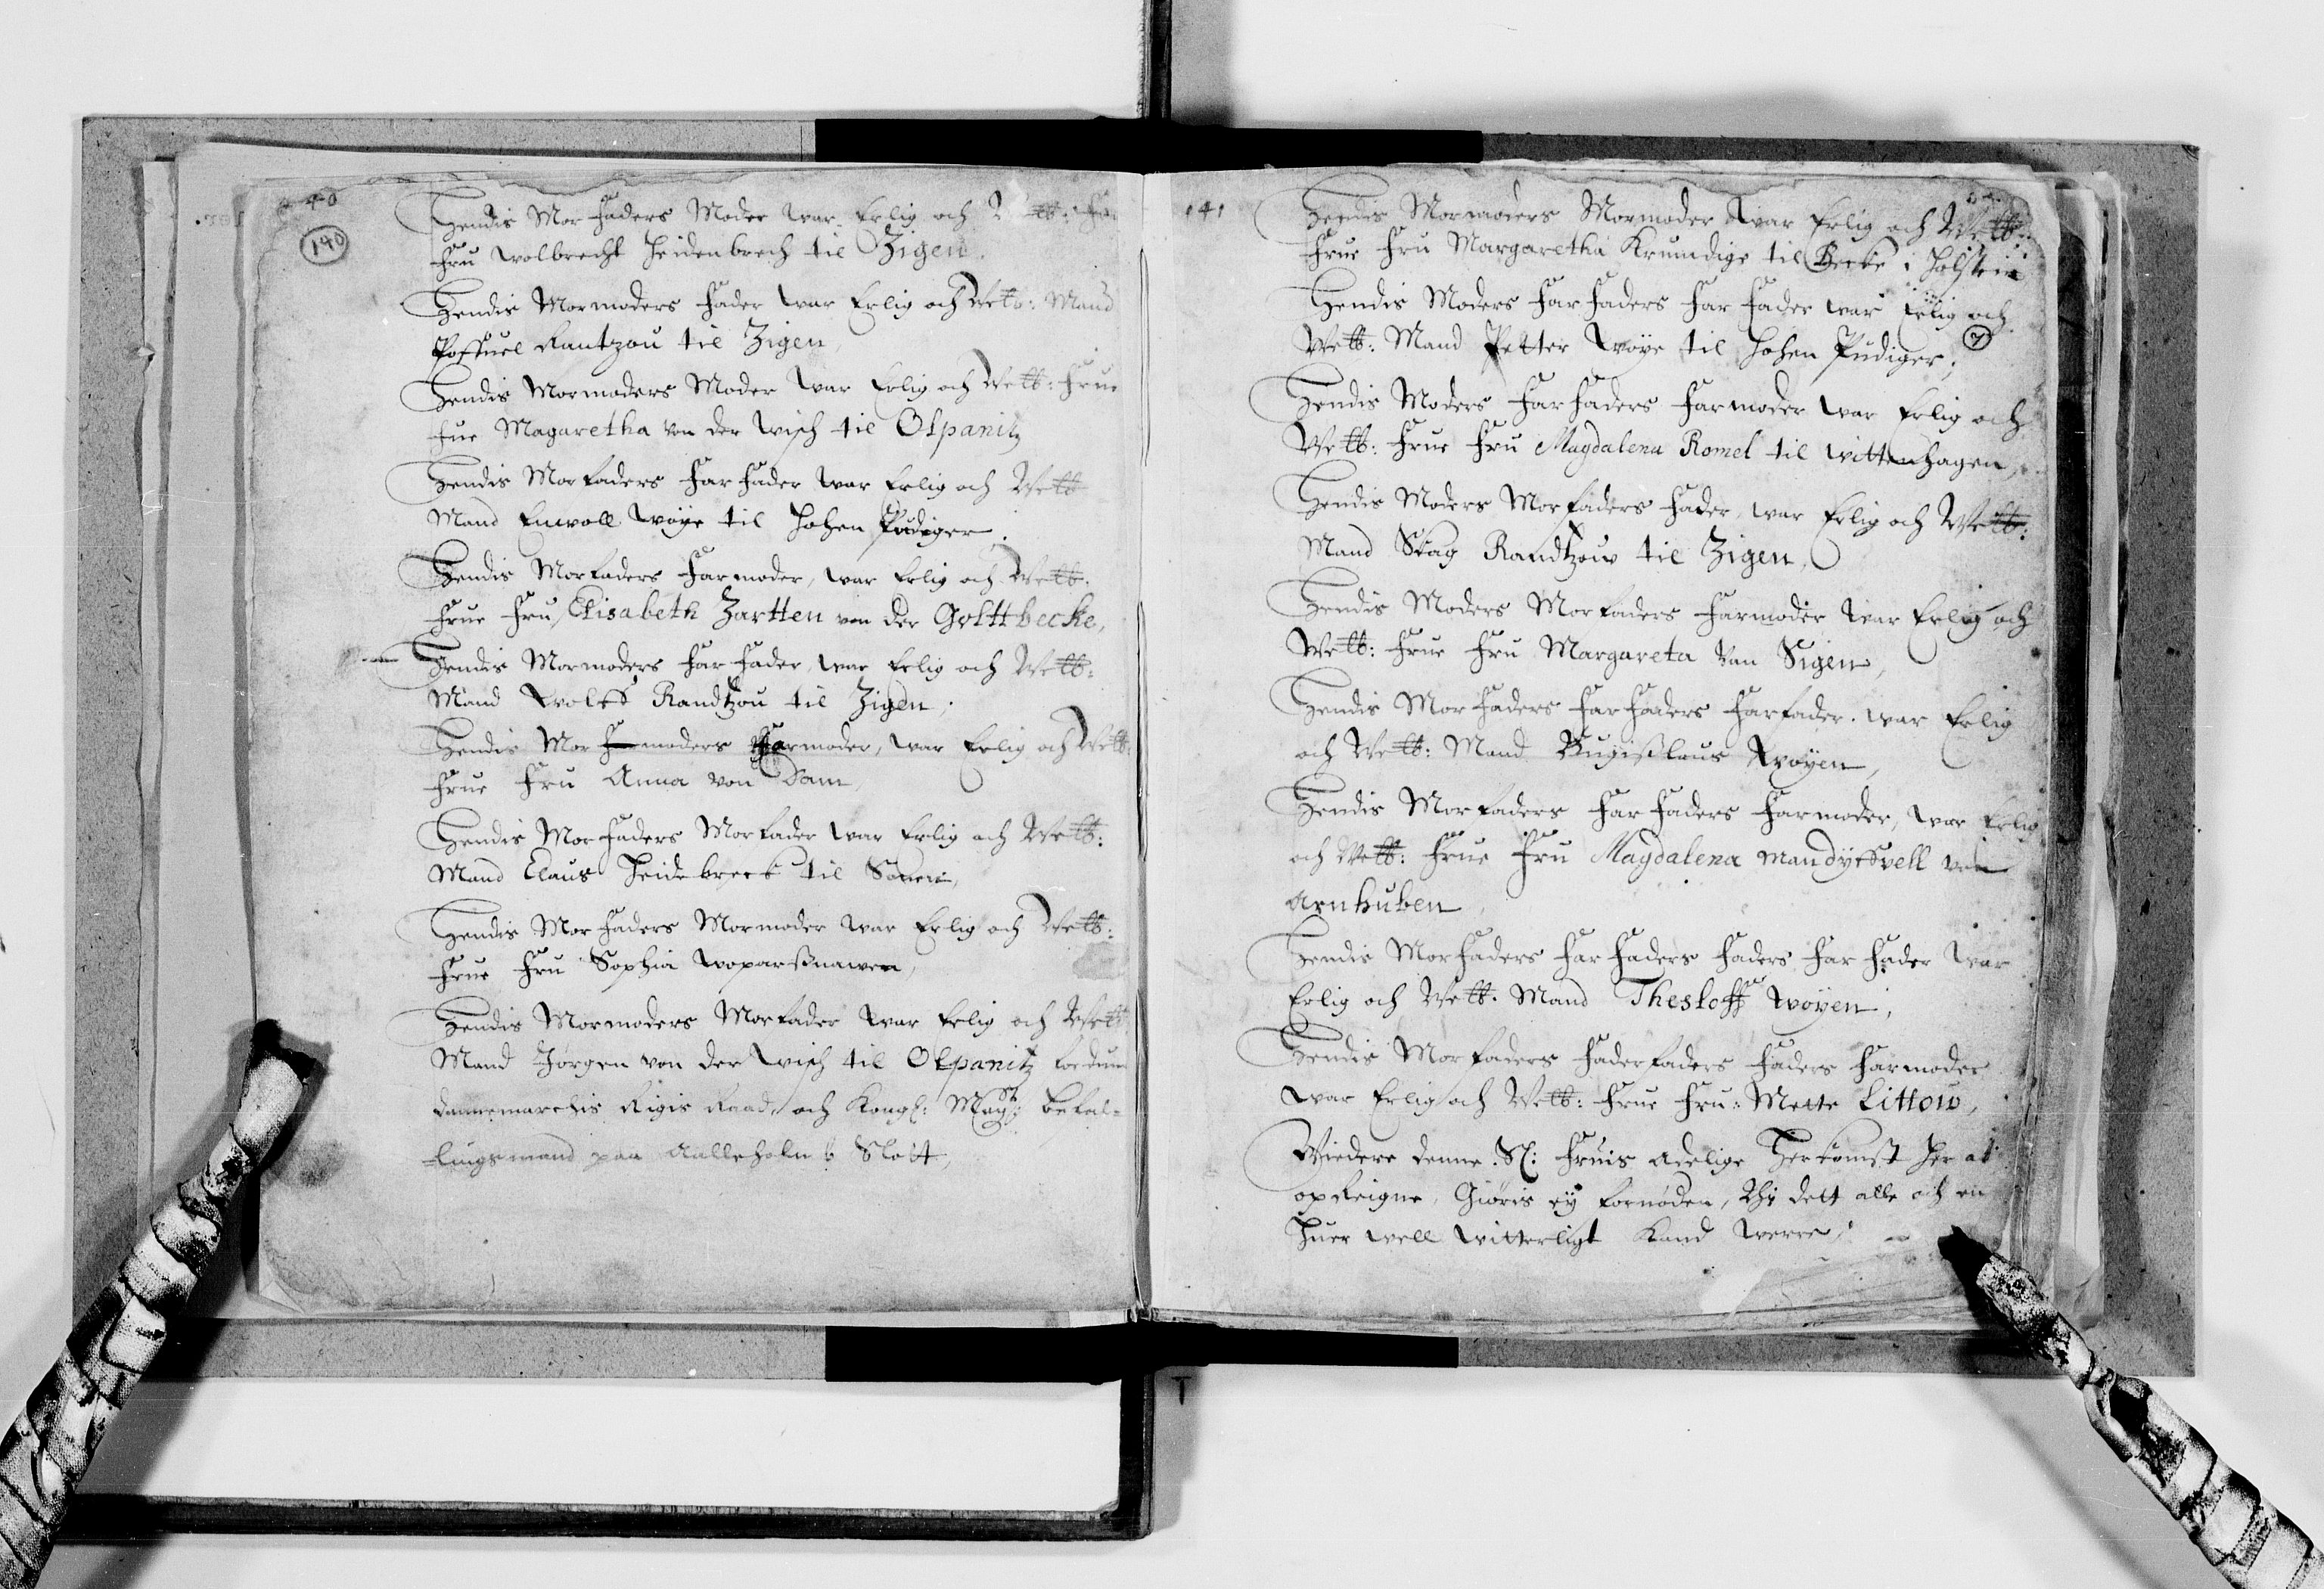 140
Hendis Morfaders Moder war Erlig och Velb:
Fru Wolbrecht Heidenbrech til Zigen.
Hendis Mormoders Fader war Erlig och Velb: Mand
Possuel Rantzou til Zigen,
Hendis Mormoders Moder war Erlig och Velb: Frue
Frue Magaretha von der Wisch til Olpanitz
Hendis Morfaders Farfader war Erlig och Velb
Mand Enwoll Woye til Hohen Pudiger.
Hendis Morfaders Farmoder, war Erlig och Velb.
Frue Fru Elisabeth Zartten von der Golttbecke,
Hendis Mormoders Farfader, war Erlig och Velb:
Mand Wolff Randtzou til Zigen.
Hendis Mor moders Farmoder, war Erlig och Velb:
Frue Fru Anna von Dam,
Hendis Morfaders Morfader war Erlig och Velb:
Mand Claus Heidebreck til
Hendis Morfaders Mormoder war Erlig och Velb:
Frue Fru Sophia Woparßnawen,
Hendis Mormoders Morfader war Erlig och Velb
Mand Jørgen von der Wisch til Olpanitz fordum
dannemarchis Rigis Raad, och Kongl: Mays: befal-
lingsmand paa Aalleholm Slott,
141
Hendis Mormoders Mormoder war Erlig och Velb:
Frue Fru Margaretha Krumdige til Becke i Holstein
Hendis Moders Farfaders Farfader war Erlig och
Velb: Mand Petter Woye til Hohen Pudiger;
Hendis Moders Farfaders Farmoder war Erlig och
Velb: Frue Fru Magdalena Romel til Wittenhagen,
Hendis Moders Morfaders Fader, war Erlig och Velb:
Mand Skag Randtzow til Zigen,
Hendis Moders Morfaders Farmoder war Erlig och
Velb: Frue Fru Margareta Van Sigen,
Hendis Morfaders Farfaders Farfader. war Erlig
och Velb: Mand Bugißlaus Woyen,
Hendis Morfaders Farfaders Farmoder, war Erlig
och Velb: Frue Fru Magdalena Mandyffvell von
Arnhuben,
Hendis Morfaders Farfaders Faders Farfader war
Erlig och Velb. Mand Thesloff Woyen,
Hendis Morfaders Faderfaders Faders Farmoder
war Erlig och Velb: Frue Fru: Mette Littow,
Widere denne Sl: Fruis Adelige Herkomst her at
opReigne, Giøris ey fornøden, Thi dett alle och en
Huer well Witterligt Kand Werre,